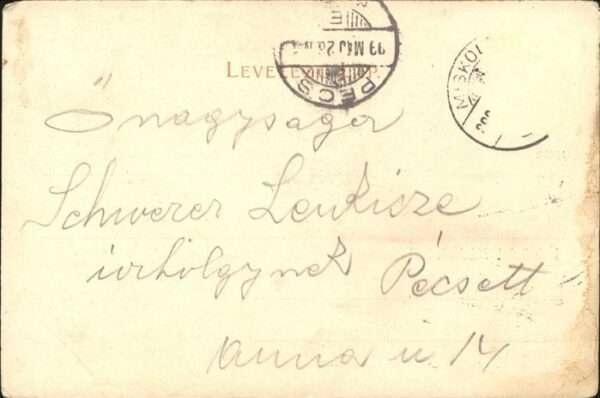 LEVELEZŐ-LAP.
PÉCS
99 MÁJ 26
MISKOL
Önagysága
Schwerer Lenkicze
úrhölgynek Pécsett
Anna u 14